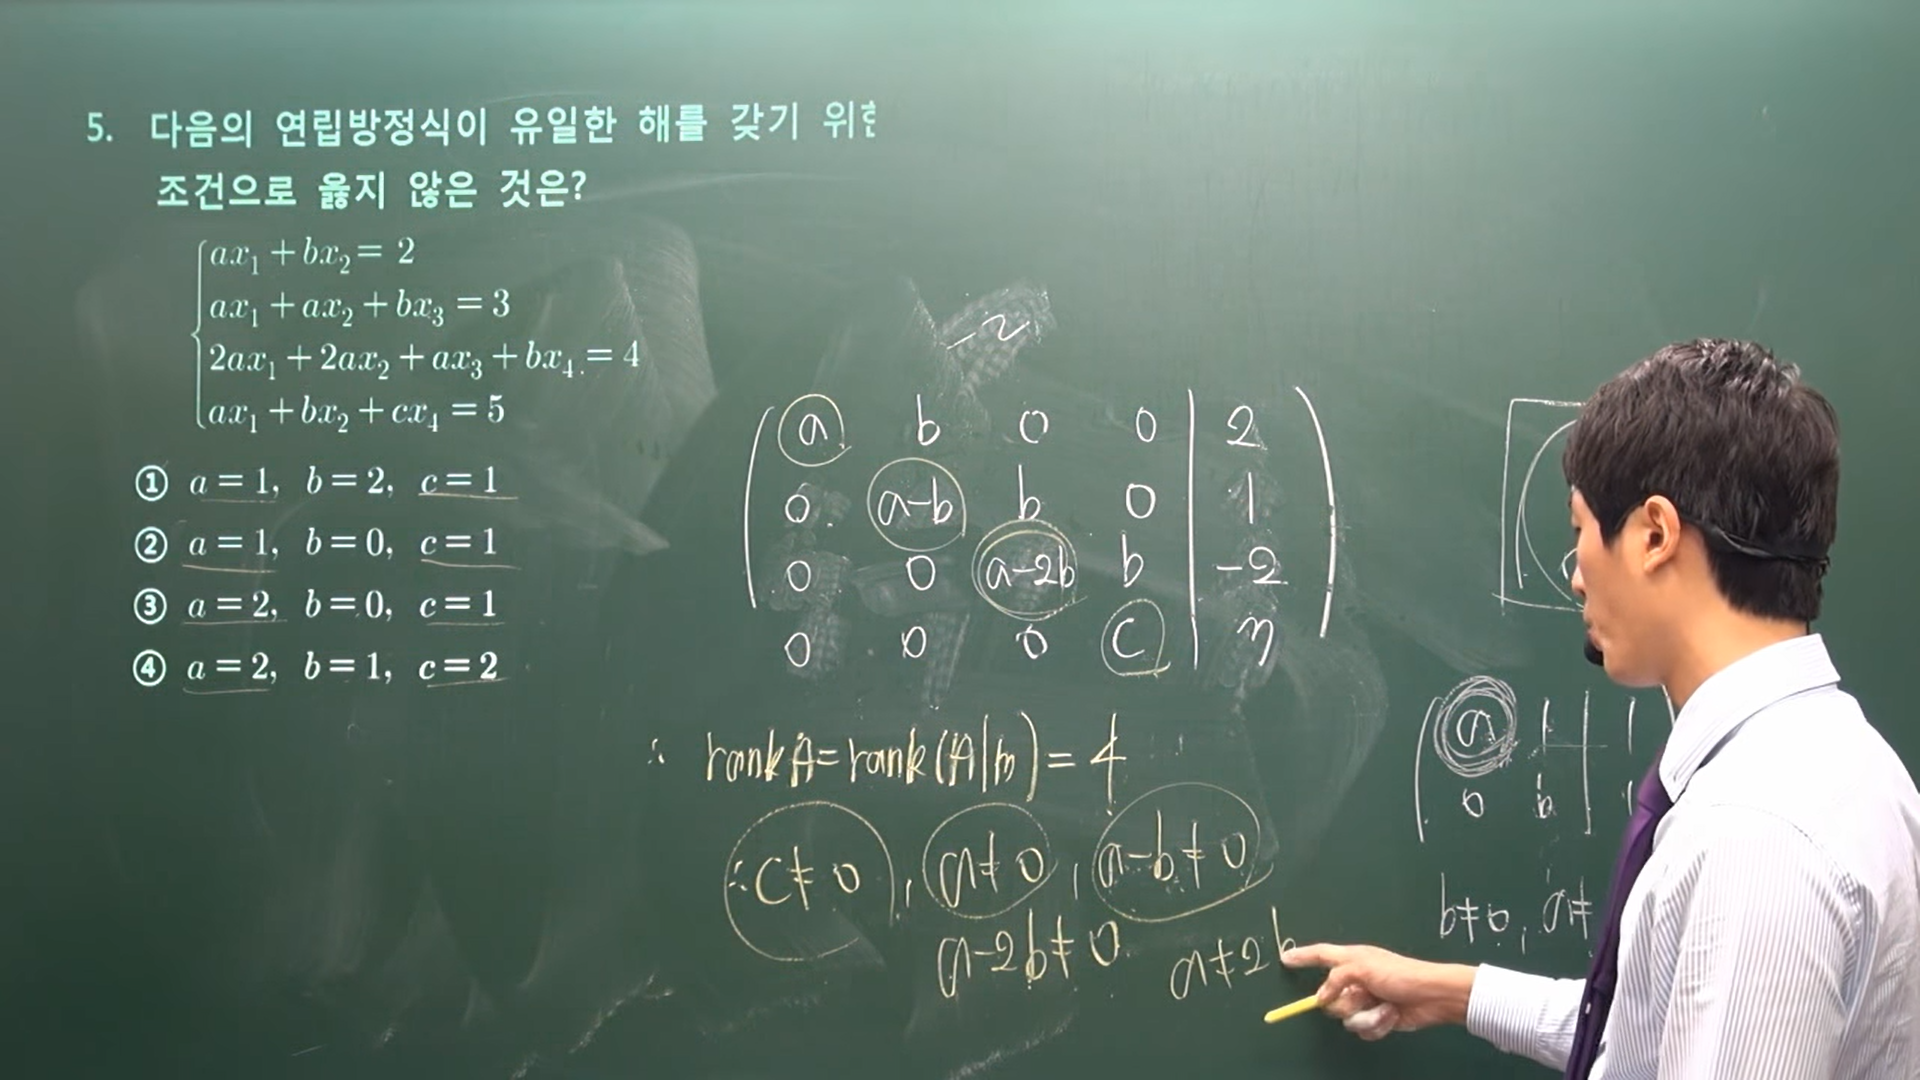 5. 다음의 연립방정식이 유일한 해를 갖기
조건으로 옳지 않은 것은?
ax₁ + bx₂ = 2
ax₁ + ax₂ + bx₃ = 3
2ax₁ + 2ax₂ + ax₃ + bx₄ = 4
ax₁ + bx₂ + cx₄ = 5
① a = 1, b = 2, c = 1
② a = 1, b = 0, c = 1
③ a = 2, b = 0, c = 1
④ a = 2, b = 1, c = 2
-2
a b 0 0 | 2
0 a-b b 0 | 1
0 0 a-2b b | -2
0 0 0 c |
∴ rank A = rank(A|b) = 4
∴ c ≠ 0, a ≠ 0, a-b ≠ 0
a-2b ≠ 0 a ≠ 2b
a 1 | 1
0 b |
b ≠ 0, a ≠